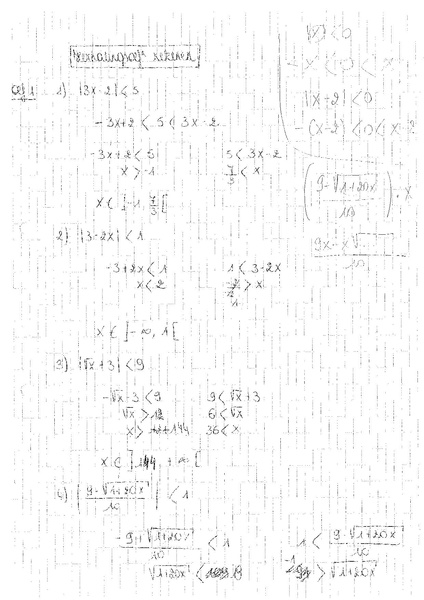 oef 1
1) |3x-2| < 5
-3x+2 < 5 < 3x-2
-3x+2 < 5    5 < 3x-2
x > -1    7/3 < x
x ∈ ]-1 7/3[
2) |3-2x| < 1
-3+2x < 1    1 < 3-2x
x < 2
x ∈ ]-∞, 1[
3) |√x+3| < 9
-√x-3 < 9    9 < √x+3
√x > 12    6 < √x
x > 144    36 < x
x ∈ ]144, +∞[
4) |(9-√(1+20x))/10| < 1
(-9+√(1+20x))/10 < 1    1 < (9-√(1+20x))/10
√(1+20x) <    > √(1+20x)
|x| < 0
-x < 0 < x
|x+2| < 0
-(x-2) < 0 < x-2
((9-√(1+20x))/10) · x
(9x-x√)/10